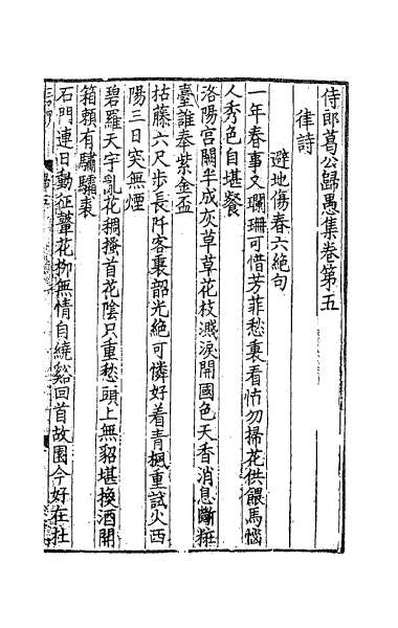 侍郎葛公歸愚集卷第五
律詩
避地傷春六絕句
一年春事又斕珊可惜芳菲愁裏看怕勿掃花供餵馬惱
人秀色自堪餐
洛陽宮闕半成灰草草花枝濺淚開國色天香消息斷粧
臺誰奉紫金盃
枯藤六尺步長阡客裏韶光絕可憐好着青楓重試火西
陽三日突無煙
碧羅天宇亂花稠搔首花陰只重愁頭上無貂堪換酒開
箱賴有驌驦裘
石門連日動征鼙花栁無情自繞谿回首故園今好在杜